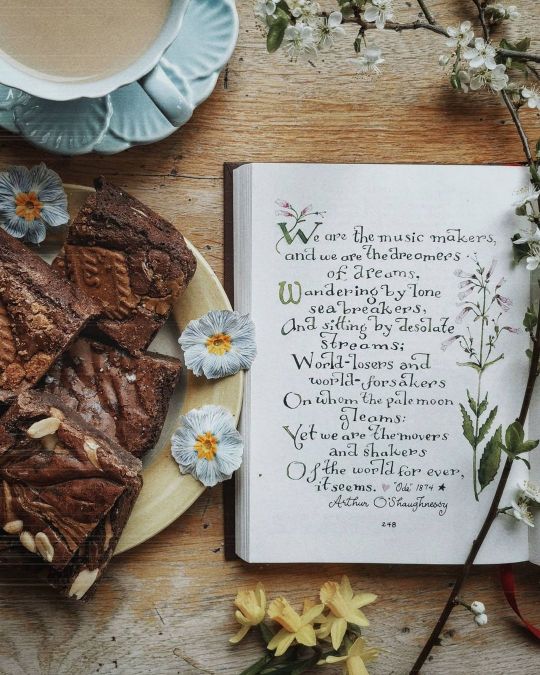 We are the music makers,
and we are the dreamers
of dreams,
Wandering by lone
sea breakers,
And sitting by desolate
streams;
World-losers and
world-forsakers
On whom the pale moon
gleams:
Yet we are the movers
and shakers
Of the world for ever,
it seems. "Ode" 1874
Arthur O'Shaughnessy
248